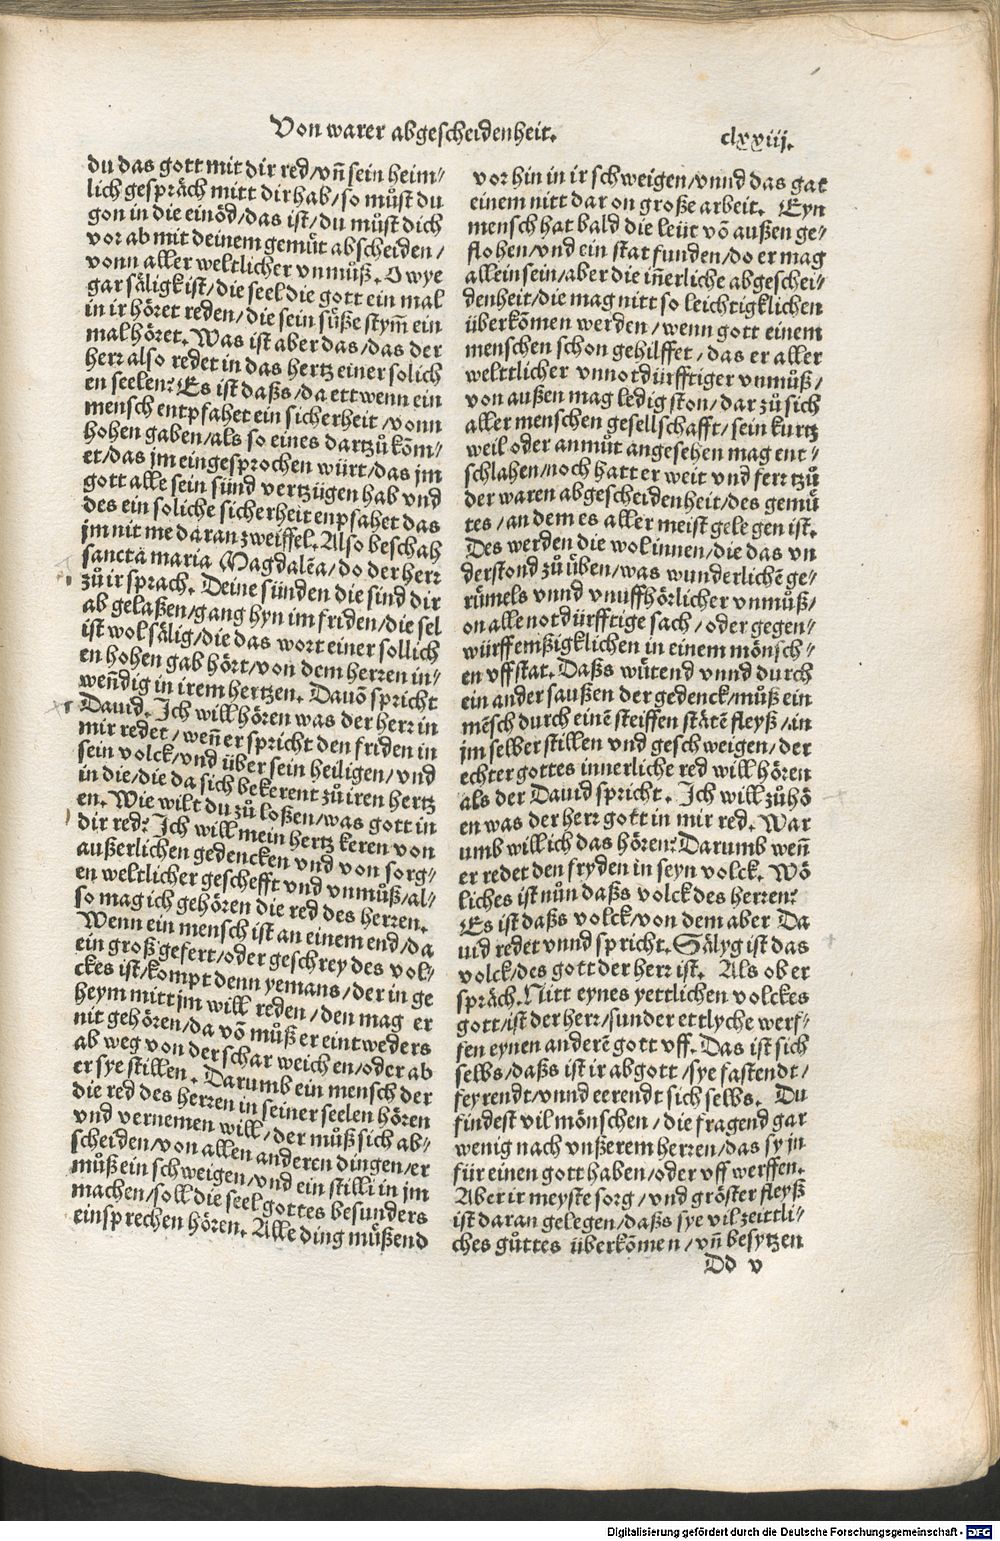 Von warer abgescheidenheit.
clxxiij.
du das gott mit dir red/vñ sein heim⸗
lich gespräch mitt dir hab/so muͤst du
gon in die einöd/das ist/du muͤst dich
vor ab mit deinem gemuͤt abscheiden/
vonn aller weltlicher vnmuͦß. O wye
gar säligk ist/die seel die gott ein mal
in ir höret reden/die sein suͤße stym̃ ein
mal höret. Was ist aber das/das der
herr also redet in das hertz einer solich
en seelen? Es ist daßs/da ettwenn ein
mensch entpfahet ein sicherheit/vonn
hohen gaben/als so eines dartzuͦ kõm⸗
et/das jm eingesprochen würt/das jm
gott alle sein sünd vertzügen hab vnd
des ein soliche sicherheit enpfahet das
jm nit me daran zweiffel. Also beschah
sancta maria Magdalẽa/do der herr
zuͦ ir sprach. Deine sünden die sind dir
ab gelaßen/gang hyn im friden/die sel
ist wol sälig/die das wort einer sollich
en hohen gab hört/von dem herren in⸗
weñdig in irem hertzen. Dauõ spricht
Dauid. Ich will hören was der herr in
mir redet/weñ er spricht den friden in
sein volck/vnd über sein heiligen/vnd
in die/die da sich bekerent zuͦ iren hertz
en. Wie wilt du zuͦ loßen/was gott in
dir red? Ich will mein hertz keren von
außerlichen gedencken vnd von sorg⸗
en weltlicher geschefft vnd vnmuͦß/al⸗
so mag ich gehören die red des herren.
Wenn ein mensch ist an einem end/da
ein groß gefert/oder geschrey des vol⸗
ckes ist/kompt denn yemans/der in ge
heym mitt jm will reden/den mag er
nit gehören/da võ muͦß er eintweders
ab weg von der schar weichen/oder ab
er sye stillen. Darumb ein mensch der
die red des herren in seiner seelen hören
vnd vernemen will/der muͦß sich ab⸗
scheiden/von allen anderen dingen/er
muͦß ein schweigen/vnd ein stilli in jm
machen/soll die seel gottes besunders
einsprechen hören. Alle ding muͤßend
vor hin in ir schweigen/vnnd das gat
einem nitt dar on große arbeit. Eyn
mensch hat bald die leüt võ außen ge⸗
flohen/vnd ein stat funden/do er mag
allein sein/aber die iñerliche abgeschei⸗
denheit/die mag nitt so leichtigklichen
überkõmen werden/wenn gott einem
menschen schon gehilffet/das er aller
welttlicher vnnotdürfftiger vnmuͦß/
von außen mag ledig ston/dar zuͦ sich
aller menschen gesellschafft/sein kurtz
weil oder anmuͦt angesehen mag ent⸗
schlahen/noch hatt er weit vnd ferr tzuͦ
der waren abgescheidenheit/des gemuͤ
tes/an dem es aller meist gelegen ist.
Des werden die wol innen/die das vn
derstond zuͦ uͤben/was wunderlichẽ ge⸗
rümels vnnd vnuffhörlicher vnmuͦß/
on alle notdürfftige sach/oder gegen⸗
würff emßigklichen in einem mönsch⸗
en vffstat. Daßs wuͤtend vnnd durch
ein ander saußen der gedenck/muͦß ein
mẽsch durch einẽ steiffen stätẽ fleyß/in
jm selber stillen vnd geschweigen/der
echter gottes innerliche red will hören
als der Dauid spricht. Ich will zuͦhö
en was der herr gott in mir red. War
umb will ich das hören? Darumb weñ
er redet den fryden in seyn volck. Wö
liches ist nuͦn daßs volck des herren?
Es ist daßs volck/von dem aber Da
uid redet vnnd spricht. Sälyg ist das
volck/des gott der herr ist. Als ob er
spräch. Nitt eynes yettlichen volckes
gott/ist der herr/sunder ettlyche werf⸗
fen eynen anderẽ gott vff. Das ist sich
selbs/daßs ist ir abgott/sye fastendt/
feyrendt/vnnd eerendt sich selbs. Du
findest vil mönschen/die fragend gar
wenig nach vnßerem herren/das sy jn
für einen gott haben/oder vff werffen.
Aber ir meyste sorg/vnd gröster fleyß
ist daran gelegen/daßs sye vil zeittli⸗
ches guͦttes überkõmen/vñ besytzen
Dd v
Digitalisierung gefördert durch die Deutsche Forschungsgemeinschaft - DFG